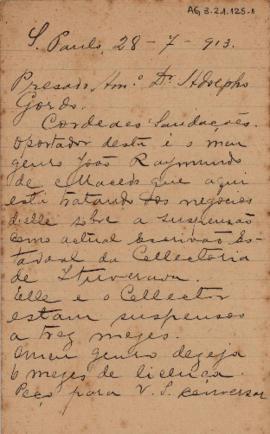 AG 3.21.125-1
S. Paulo, 28-7-913.
Presado Am.º Dr. Adolpho
Gordo.
Cordeaes Saudações.
O portador desta é o meu
genro João Raymundo
de Macedo que aqui
está tratando dos negocios
delle sobre a suspensão
como actual Escrivão Es-
tadoal da Collectoria
de Ituverava.
Elle e o Collector
estam suspensos
a trez mezes.
O meu genro dezeja
6 mezes de licença.
Peço para V. S. conversar